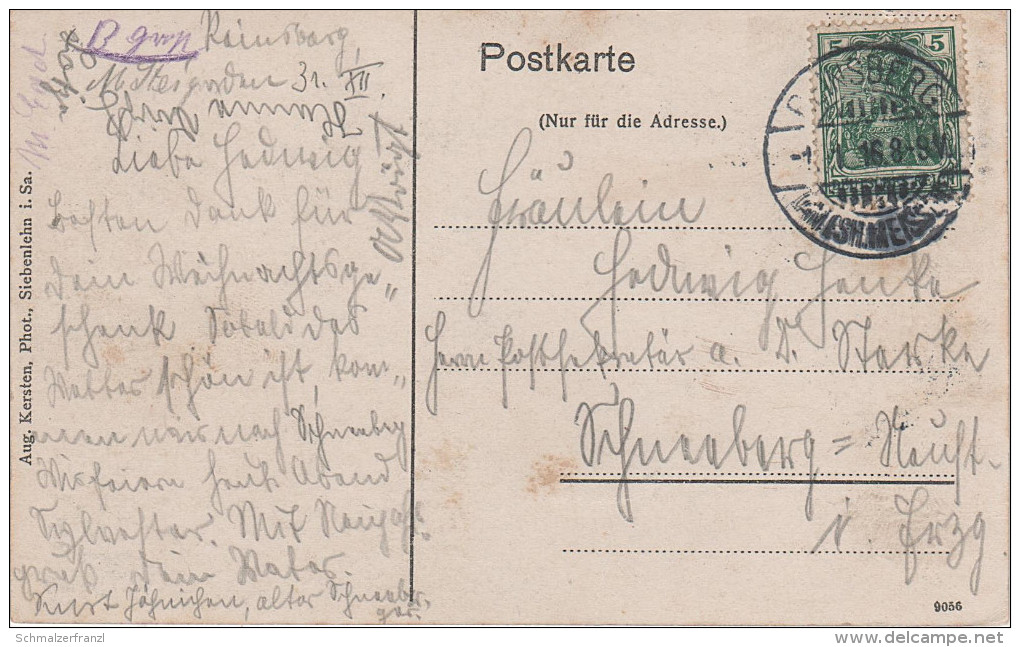 Reinsberg,
Mittergarden 31. XII.
Liebe Hedwig
besten Dank für
Dein Weihnachtsge„
schenk Sobald das
Wetter schön ist, kom„
men wir nach Schneeberg
Wir feiern heut Abend
Sylvester. Mit Neujahrs
gruß Dein Vater.
Kurt Jähnichen, alter Schneeber„
ger.
Aug. Kersten, Phot., Siebenlehn i. Sa.
Postkarte
(Nur für die Adresse.)
5 5
Fräulein
Hedwig Henke
Herrn Postsekretär a. D. Starke
Schneeberg = Neust.
i. Erzg
9056
Schmalzerfranzl
www.delcampe.net